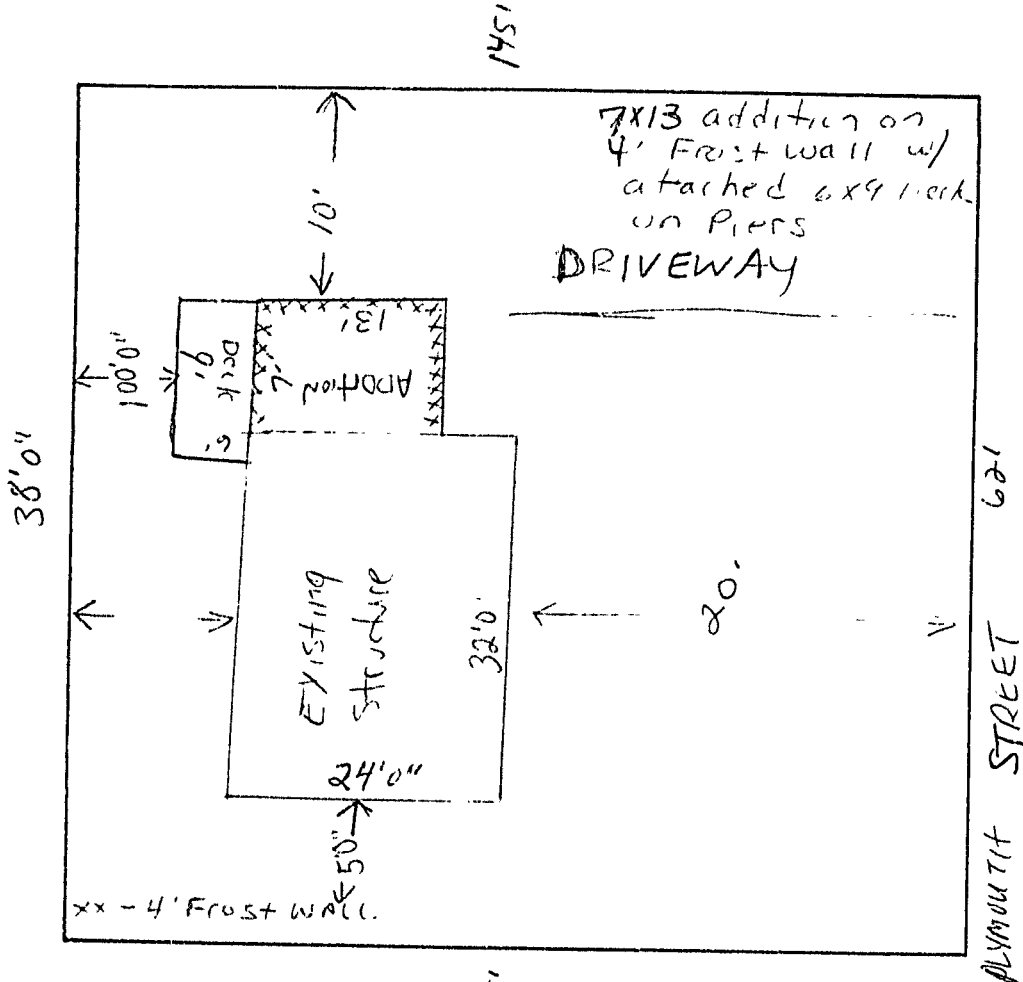 145'
7x13 addition on
4' Frost wall w/
atached 6x9 Deck
on Piers
DRIVEWAY
10'
100'0"
38'0"
Deck
9'
6'
13'
7'
ADDITION
Existing
Structure
32'0"
24'0"
50"
20'
xx - 4' Frost WALL.
PLYMOUTH STREET 62'